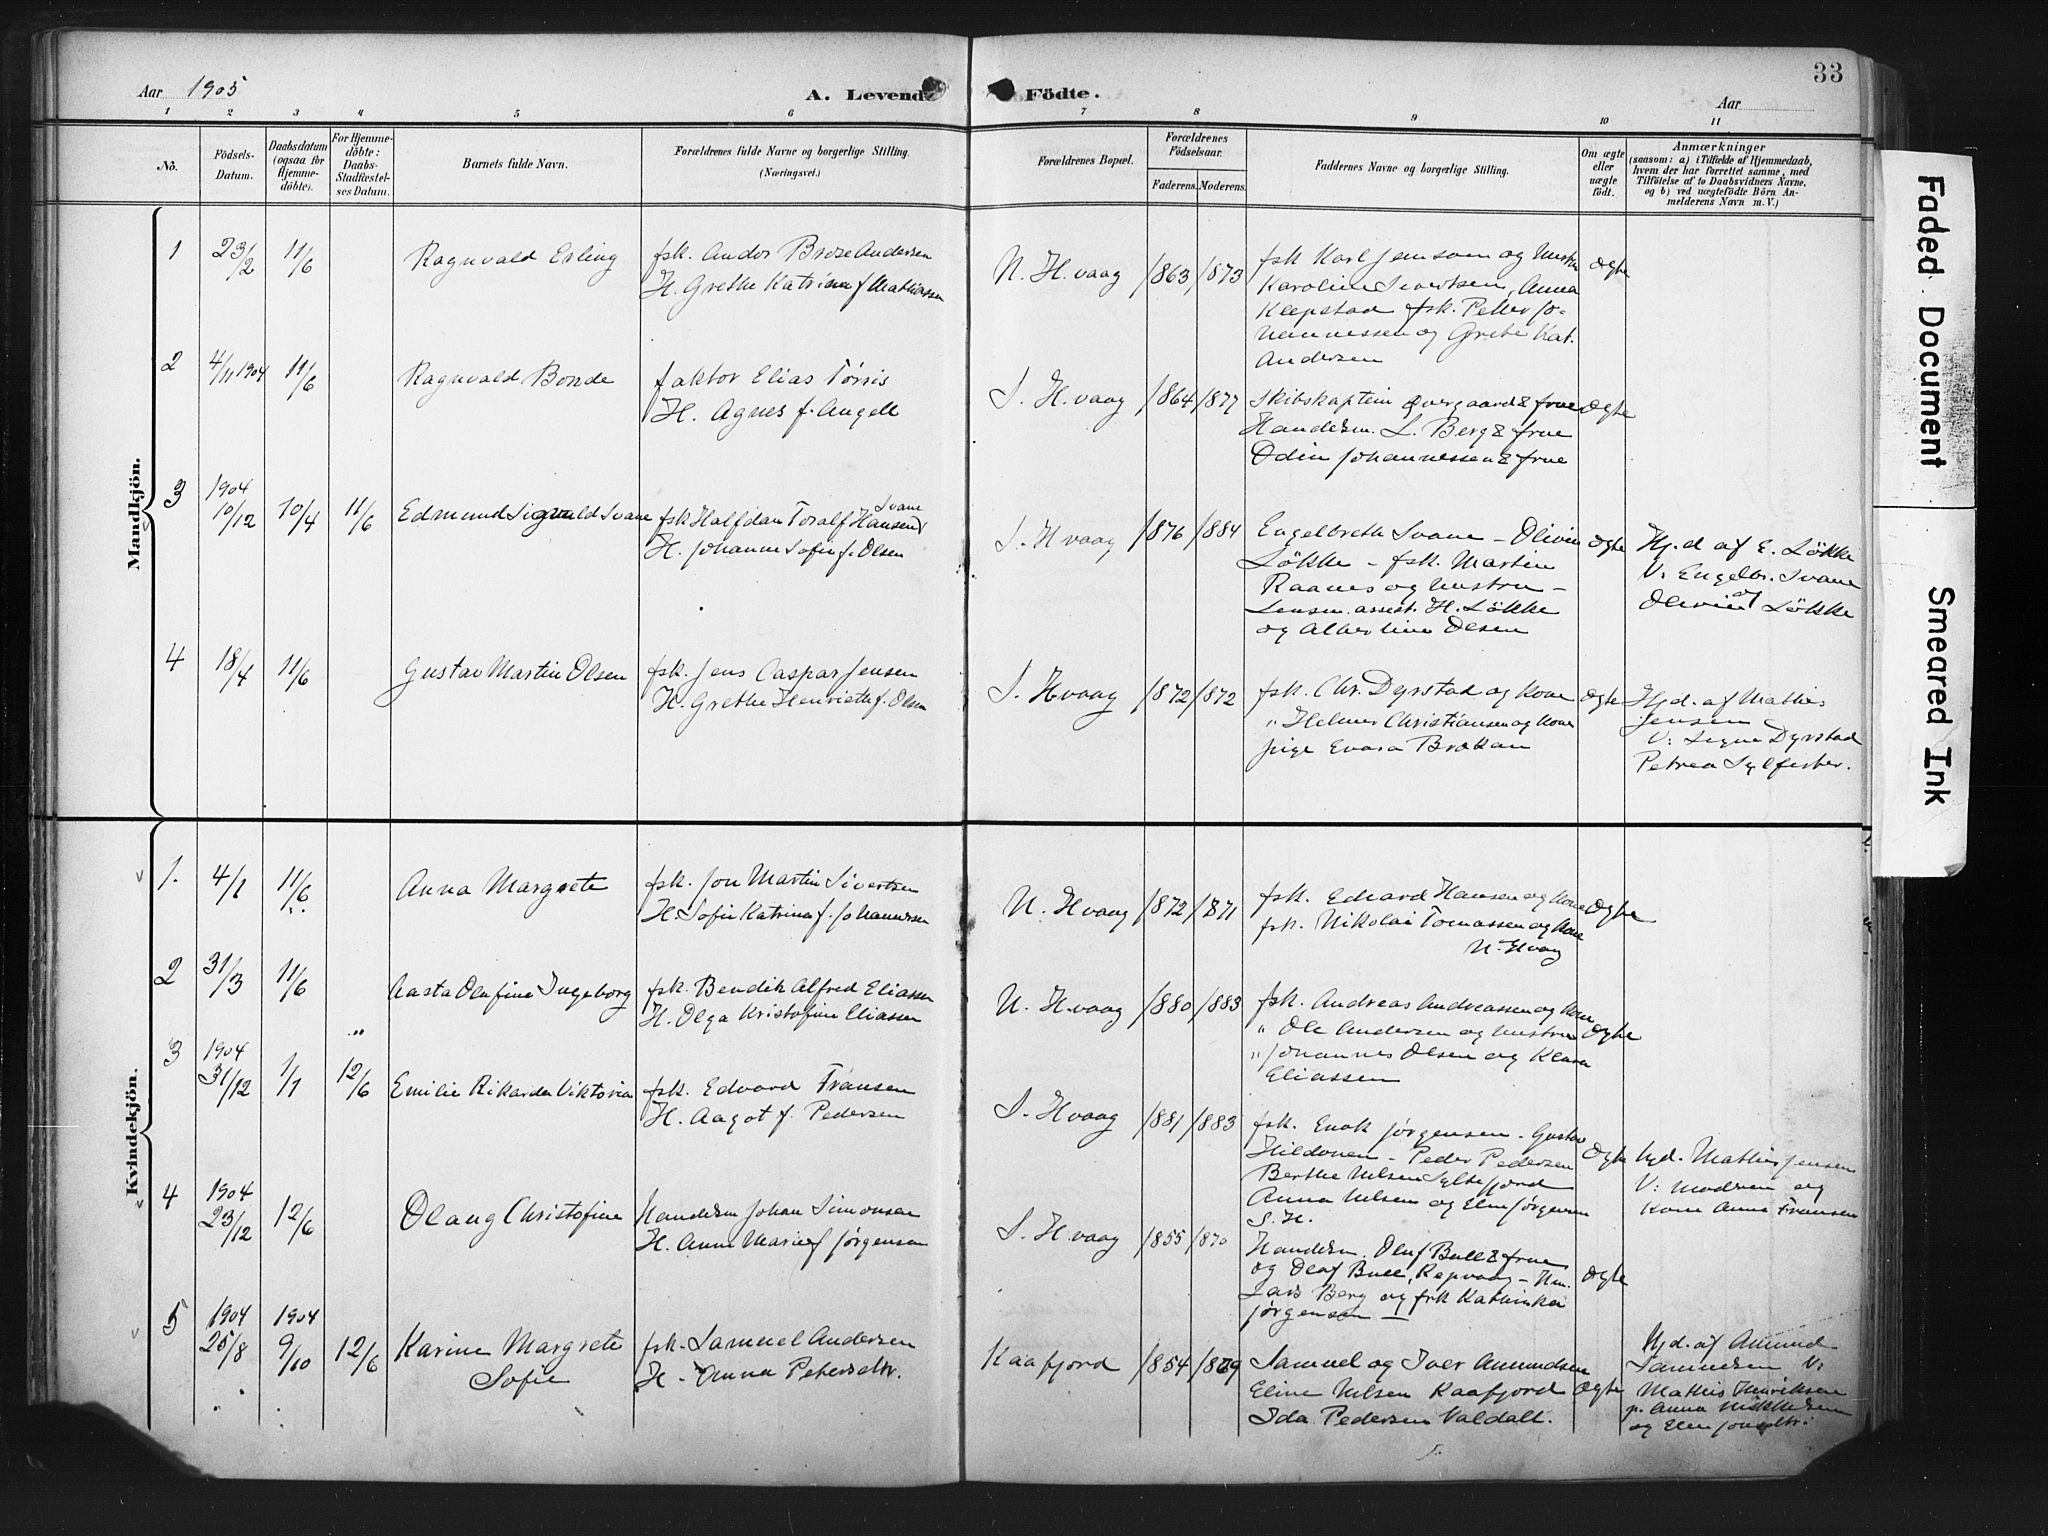 Aar 1905
A. Levende
Födte.
Aar
33
1 2 3 4 5 6 7 8 9 10 11
No.
Födsels-
Datum.
Daabsdatum
(ogsaa for
Hjemme-
döbte).
For Hjemme-
döbte:
Daabs-
Stadfæstel-
ses Datum.
Barnets fulde Navn.
Forældrenes fulde Navne og borgerlige Stilling.
(Næringsvei.)
Forældrenes Bopæl.
Forældrenes
Födselsaar.
Faderens. Moderens.
Faddernes Navne og borgerlige Stilling.
Om ægte
eller
uægte
födt.
Anmærkninger
(saasom: a) i Tilfælde af Hjemmedaab,
hvem der har forrettet samme, med
Tilföielse af to Daabsvidners Navne,
og b) ved uægtefödte Börn An-
melderens Navn m. V.)
Mandkjön.
1 23/2 11/6 Ragnvald Erling
fsk. Andor Broze Andersen
H. Grethe Katrina f Mathiassen
N. H.vaag 1863 1873
fsk Karl Jensen og Hustru
Karoline Sivertsen, Anna
Klepstad fsk. Petter Jo-
hannessen og Grete Kat.
Andersen
Ægte
2 4/11 1904 11/6 Ragnvald Bonde
faktor Elias Tórris
H. Agnes f. Angell
S. H.vaag 1864 1877
Skibskaptein Overgaard & frue
Handelsm. L. Berg & frue
Odin Johannessen & frue
Ægte
3 1904
10/12 10/4 11/6 Edmund Sigvald Svane
fsk Halfdan Toralf Hansen Svane
H. Johanne Sofie f. Olsen
S. H.vaag 1876 1884
Engelbreth Svane – Olivin
Løkke – fsk. Martin
Raanes og hustru –
Lensm. assist. H. Løkke
og Albertine Olsen
Ægte
Hj.d af E. Løkke
V: Engelbr. Svane
og
Olivin Løkke
4 18/4 11/6 Gustav Martin Olsen
fsk. Jens Caspar Jensen
H. Grethe Henriethe f. Olsen
S. Hvaag 1872 1872
fsk. Chr. Dyrstad og Kone
" Helmer Christiansen og Kone
pige Evara Brækan
Ægte
Hjd. af Mathis
Jensen
V: Signe Dyrstad
Petrea Sylfester.
Kvindekjön.
1. 4/1 11/6 Anna Margrete
fsk. Jon Martin Sivertsen
H Sofie Katrina f. Johannessen
N. Hvaag 1872 1871
fsk. Edvard Hansen og Kone
fsk. Nikolai Tomassen og Kone
N. Hvaag
Ægte
2 31/3 11/6 Aasta Olufine Ingeborg
fsk. Bendik Alfred Eliassen
H. Olga Kristofine Eliassen
N. H.vaag 1880 1883
fsk. Andreas Andreassen og Kone
" Ole Andersen og hustru
" Johannes Olsen og Klara
Eliassen
Ægte
3 1904
31/12 1/1 12/6 Emilie Rikarda Viktoria
fsk. Edvard Fransen
H. Aagot f. Pedersen
S. Hvaag 1881 1883
fsk. Enok Jørgensen. Gustav
Hildonen – Peder Pedersen
Berthe Nilsen Syltefjord
Anna Nilsen og Elen Jørgensen
S. H.
Ægte
hjd. Mathis Jensen
V: Modren og
Kone Anna Fransen
4 1904
23/12 12/6 Olaug Christofine
Handelsm Johan Simonsen
H. Anne Marie f Jørgensen
S. H.vaag 1855 1870
Handelsm. Oluf Bull & frue
og Olaf Bull, Repvaag – Hm.
Lars Berg og frk Kathinka
Jørgensen –
Ægte
5 1904 1904
25/8 9/10 12/6 Karine Margrete
Sofie
fsk. Samuel Andersen
H – Anna Petersdtr.
Kaafjord 1854 1869
Samuel og Iver Amundsen
Eline Nilsen Kaafjord
Ida Pedersen Valdall.
Ægte
Hjd. af Amund
Samuelsen V:
Mathis Henriksen
p. Anna Mikkelsen
og Elen Jonsdtr.
Faded Document
Smeared Ink